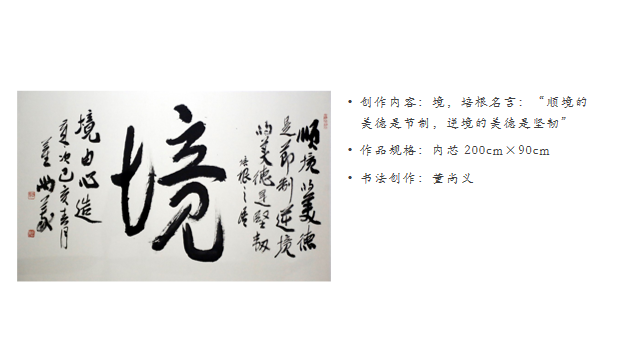 顺境的美德
是節制逆境
的美德是堅韧
境
境由心造
己亥
• 创作内容：境，培根名言：“顺境的
美德是节制，逆境的美德是坚韧”
• 作品规格：内芯 200cm×90cm
• 书法创作：董尚义